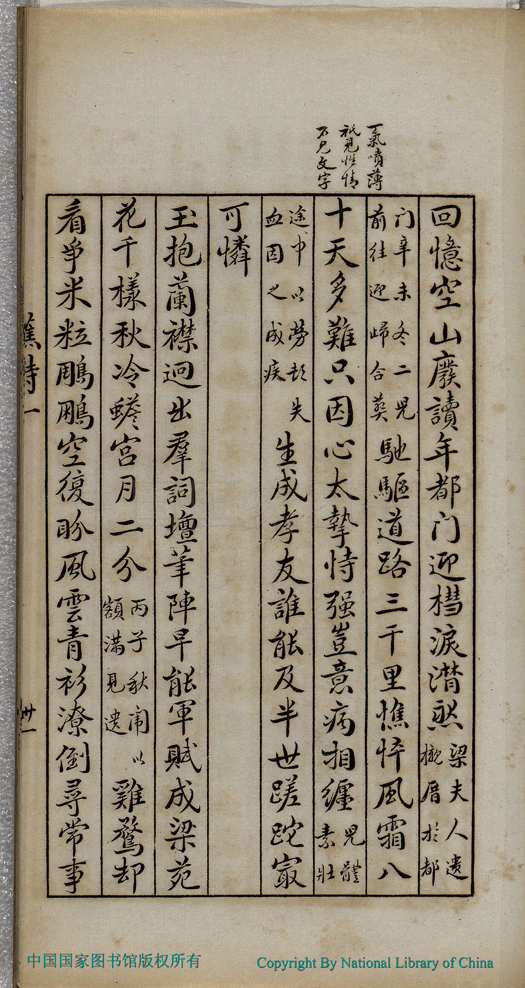 一氣噴薄
祇見性情
不見文字
回憶空山廢讀年都门迎槥淚潸然梁夫人遺櫬厝於都
门辛未冬二兄前往迎歸合葬馳驅道路三千里憔悴風霜八
十天多難只因心太摯恃强豈意病相纏兄體素壯
途中以勞頓失血因之成疾生成孝友誰能及半世蹉跎冣
可憐
玉抱蘭襟迥出羣詞壇筆陣早能軍賦成梁苑
花千樣秋冷蟾宮月二分丙子秋闈以額滿見遺雞鶩却
看爭米粒鵰鵬空復盼風雲青衫潦倒尋常事
卅一
中国国家图书馆版权所有
Copyright By National Library of China